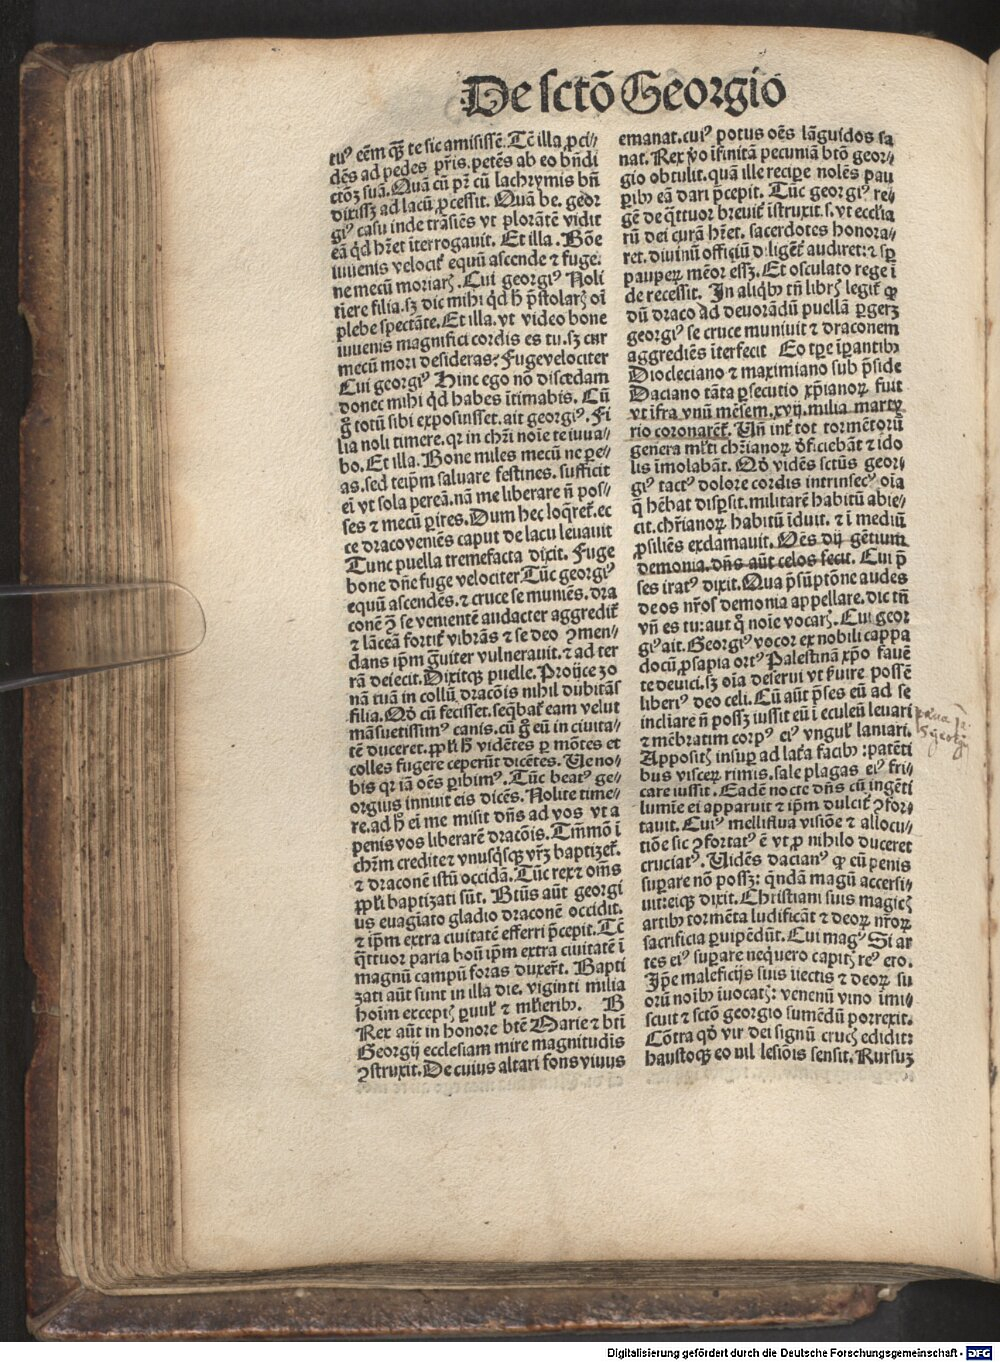 De sctō Georgio
tuꝰ eēm q̄ꝫ te sic amisissē. Tē illa ꝓci⸗
dēs ad pedes pr̄is. petēs ab eo bn̄di
ctōꝫ suā. Quā cū pr̄ cū lachrymis bn̄
dixissꝫ ad lacū ꝓcessit. Quā be. geor
giꝰ casu inde trāsiēs vt plorātē vidit
eā qd hr̄et īterrogauit. Et illa. Bōe
iuuenis velocit̄ equū ascende ⁊ fuge.
ne mecū moriarꝭ. Cui georgiꝰ Noli
tīere filia. sꝫ dic mihi qd h̄ p̄stolarꝭ oī
plebe spectāte. Et illa. vt video bone
iuuenis magnifici cordis es tu. sꝫ cur
mecū mori desideras? Fuge velociter
Cui georgiꝰ Hinc ego nō discedam
donec mihi qd habes ītimabis. Cū
g̊ totū sibi exposuisset. ait georgiꝰ. Fi
lia noli timere. qr in chr̄i noīe te iuua⸗
bo. Et illa. Bone miles mecū ne pe⸗
as. sed teip̄m saluare festines. sufficit
eī vt sola pereā. nā me liberare n̄ pos⸗
ses ⁊ mecū ꝑires. Dum hec loq̄ret̄. ec
ce draco veniēs caput de lacu leuauit
Tunc puella tremefacta dixit. Fuge
bone dn̄e fuge velociter Tūc georgiꝰ
equū ascendēs. ⁊ cruce se muniēs. dra
conē ꝫ se venientē audacter aggredit̄
⁊ lāceā fortit̄ vibrās ⁊ se deo ꝯmen⸗
dans ip̄m g̊uiter vulnerauit. ⁊ ad ter
rā deiecit. Dixitqꝫ puelle. Proijce zo
nā tuā in collū dracōis nihil dubitās
filia. Qd cū fecisset. seq̄bat̄ eam velut
māsuetissimꝰ canis. cū g̊ eū in ciuita⸗
tē duceret. ppl̄i h̄ vidētes ꝑ mōtes et
colles fugere ceperūt dicētes. Ue no⸗
bis qr iā oēs ꝑibimꝰ. Tūc beatꝰ ge⸗
orgius innuit eis dicēs. Nolite time⸗
re. ad h̄ eī me misit dn̄s ad vos vt a
penis vos liberarē dracōis. Tm̄mō ī
chr̄m credite ⁊ vnusq̄sqꝫ vr̄ꝫ baptizet̄.
⁊ draconē istū occidā. Tūc rex ⁊ om̄s
ppl̄i baptizati sūt. Btūs aūt georgi
us euagīato gladio draconē occidit.
⁊ ip̄m extra ciuitatē efferri p̄cepit. Tē
q̄ttuor paria boū ip̄m extra ciuitatē ī
magnū campū foras duxer̄t. Bapti
zati aūt sunt in illa die. viginti milia
hoīm exceptꝭ ꝑuul̄ ⁊ ml̄ierib⁊. B
Rex aūt in honore btē Marie ⁊ bti
Georgij ecclesiam mire magnitudis
ꝯstruxit. De cuius altari fons viuus
emanat. cuiꝰ potus oēs lāguidos sa
nat. Rex ꝟo īfinitā pecuniā btō geor⸗
gio obtulit. quā ille recipe nolēs pau
ꝑib⁊ eā dari p̄cepit. Tūc georgiꝰ re⸗
gē de q̄ttuor breuit̄ īstruxit. s. vt eccl̄ia
rū dei curā hr̄et. sacerdotes honora⸗
ret. diuinū officiū diligēt̄ audiret: ⁊ sꝑ
pauperꝝ mēor essꝫ. Et osculato rege ī
de recessit. In aliq̄b⁊ tn̄ libr̄ legit̄ qꝫ
dū draco ad deuorādū puellā ꝑgerꝫ
georgiꝰ se cruce muniuit ⁊ draconem
aggrediēs īterfecit Eo tꝑe īꝑantib⁊
Diocleciano ⁊ maximiano sub p̄side
Daciano tāta ꝑsecutio xp̄ianoꝝ fuit
vt īfra vnū mēsem. xvij. milia marty
rio coronarēt̄. Un̄ int̄ tot tormētorū
genera ml̄ti chr̄ianoꝝ deficiebāt ⁊ ido
lis īmolabāt. Qd vidēs sctūs geor⸗
giꝰ tactꝰ dolore cordis intrinsecꝰ oīa
q̄ hēbat disꝑsit. militarē habitū abie⸗
cit. chr̄ianoꝝ habitū īduit. ⁊ ī mediū
ꝓsiliēs exclamauit. Oēs dij gētium
demonia. dn̄s aūt celos fecit. Cui p̄
ses iratꝰ dixit. Qua p̄sūptōne audes
deos nr̄os demonia appellare. dic tn̄
vn̄ es tu: aut q̊ noīe vocarꝭ. Cui geor
giꝰ ait. Georgiꝰ vocor ex nobili cappa
docū ꝓsapia ortꝰ Palestinā xp̄o fauē
te deuici. sꝫ oīa deserui vt ẜuire possē
liberiꝰ deo celi. Cū aūt p̄ses eū ad se
incliare n̄ possꝫ iussit eū ī eculeū leuari
⁊ mēbratim corpꝰ eiꝰ vngul̄ laniari.
Appositꝭ insuꝑ ad lat̄a facib⁊: patēti
bus visceꝝ rimis. sale plagas eiꝰ fri⸗
care iussit. Eadē nocte dn̄s cū ingēti
lumīe ei apparuit ⁊ ip̄m dulcit̄ ꝯfor⸗
tauit. Cuiꝰ melliflua visiōe ⁊ allocu⸗
tiōe sic ꝯfortatꝰ ē vt ꝓ nihilo duceret
cruciatꝰ. Uidēs dacianꝰ qꝫ cū penis
suꝑare nō possꝫ: q̄ndā magū accersi⸗
uit: eiqꝫ dixit. Christiani suis magicꝭ
artib⁊ tormēta ludificāt ⁊ deoꝝ nr̄oꝝ
sacrificia ꝑuipēdūt. Cui magꝰ Si ar
tes eiꝰ suꝑare neq̄uero capitꝭ reꝰ ero.
Ip̄e maleficijs suis īiectis ⁊ deoꝝ su
orū noīb⁊ īuocatꝭ: venenū vino īmi⸗
scuit ⁊ sctō georgio sumēdū porrexit.
Cōtra qd vir dei signū crucꝭ edidit:
haustoqꝫ eo nil lesiōis sensit. Rursuꝫ
Digitalisierung gefördert durch die Deutsche Forschungsgemeinschaft - DFG